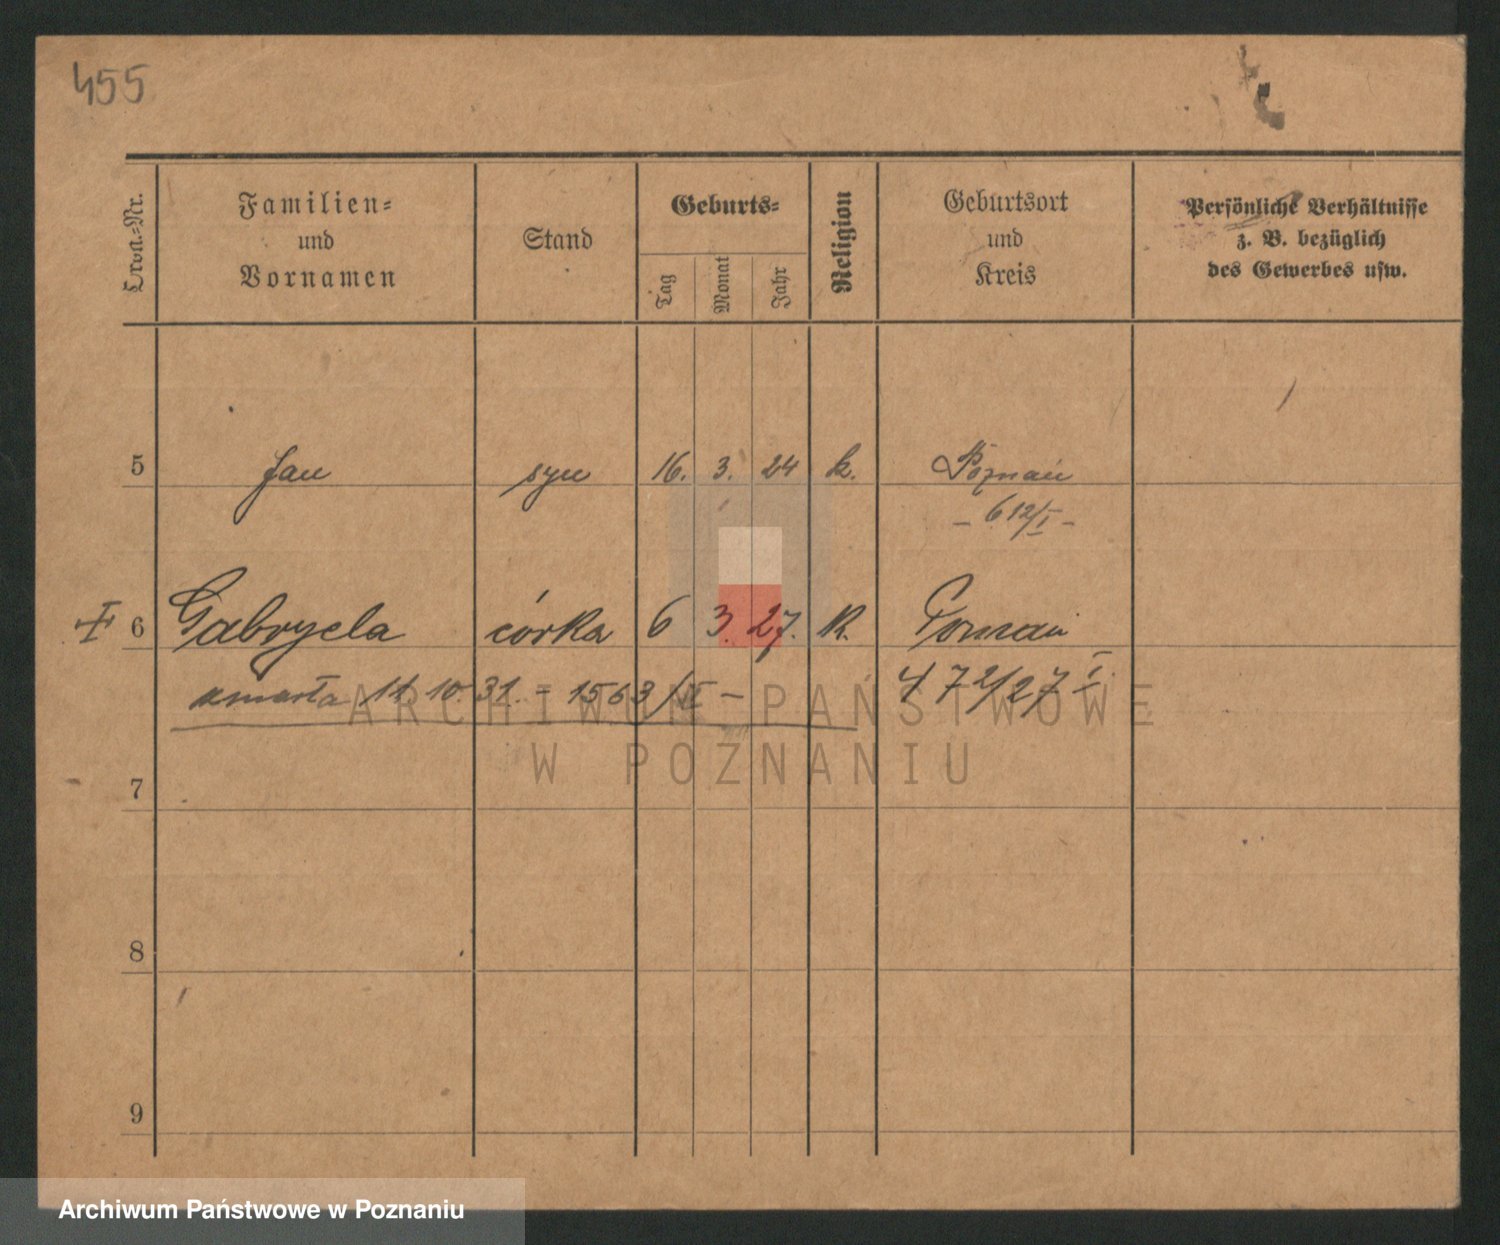 455
Ordn.-Nr.
Familien-
und
Vornamen
Stand
Geburts-
Tag
Monat
Jahr
Religion
Geburtsort
und
Kreis
Persönliche Verhältnisse
z. B. bezüglich
des Gewerbes usw.
5 Jan syn 16. 3. 24 k. Poznań
- 612/I -
6 Gabryela córka 6 3. 27. k. Poznań
umarła 11 10 31. - 1563/II -
472/27 I
7
8
9
ARCHIWUM PAŃSTWOWE
W POZNANIU
Archiwum Państwowe w Poznaniu